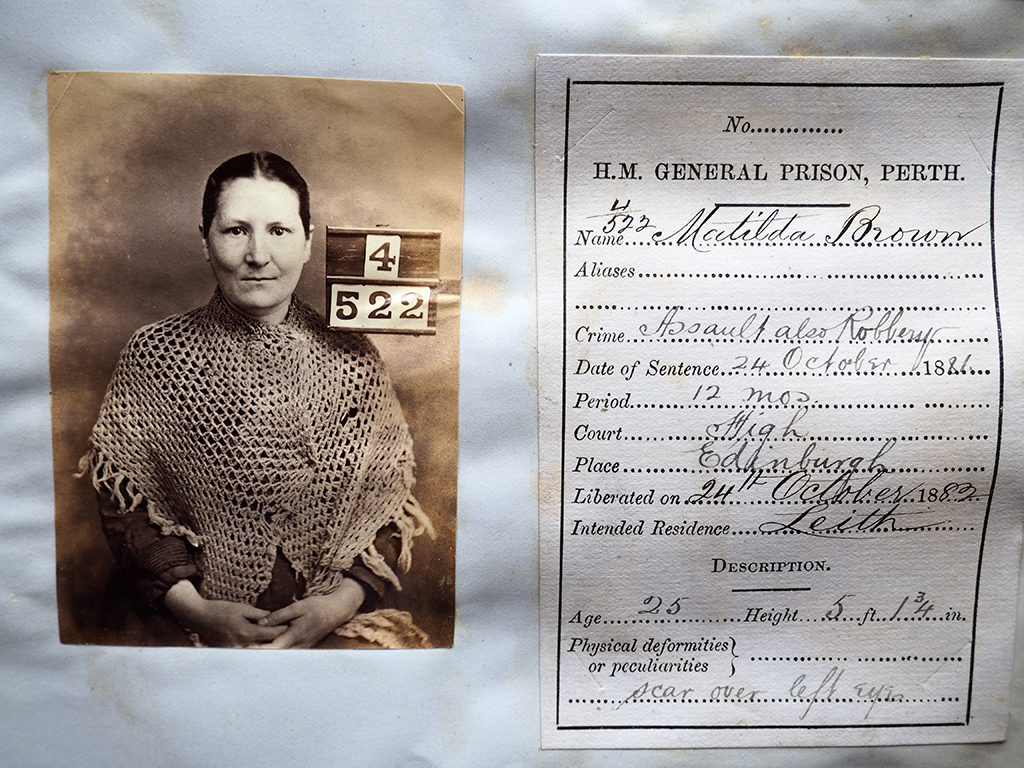 4
522
No.
H.M. GENERAL PRISON, PERTH.
4
522
Name Matilda Brown
Aliases
Crime Assault also Robbery
Date of Sentence 24 October 1881
Period 12 mos.
Court High
Place Edinburgh
Liberated on 24th October 1882
Intended Residence Leith
DESCRIPTION.
Age 25 Height 5 ft. 1 3/4 in.
Physical deformities
or peculiarities
scar over left eye